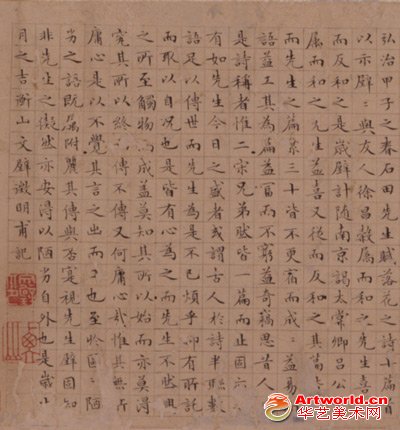 弘治甲子之春石田先生賦落花之詩十篇首
以示璧璧與友人徐昌穀屬而和之先生喜從
而反和之是歲璧計隨南京謁太常卿呂公又
屬而和之先生益喜又從而反和之其篇皆十
而先生之篇累三十皆不更宿而成成益易而
語益工其為篇益富而不窮益奇竊思昔人以
是詩稱者惟二宋兄弟然皆一篇而止固未
有如先生今日之盛者或謂古人於詩半聯數
語足以傳世而先生為是不已煩乎抑有所託
而取以自況也是皆有心為之而先生不然興
之所至觸物而成蓋莫知其所以始而亦莫得
究其所以終其傳不傳又何庸心哉惟其無所
庸心是以不覺其言之出而工也至於區區陋
劣之語既屬附麗其傳與否實視先生璧固知
非先生之儗然亦安得以陋劣自外也是歲十
月之吉衡山文璧徵明甫記
Artworld.cn
华艺美术网